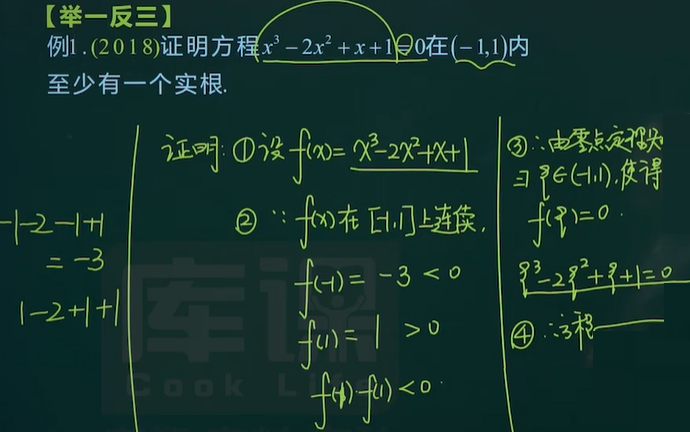 【举一反三】
例1.(2018)证明方程x³-2x²+x+1=0在(-1,1)内
至少有一个实根.
-1-2-1+1
=-3
1-2+1+1
证明:①设f(x)=x³-2x²+x+1
②∵f(x)在[-1,1]上连续,
f(-1)=-3<0
f(1)=1>0
f(-1)·f(1)<0.
③∴由零点定理知
∃ξ∈(-1,1),使得
f(ξ)=0.
ξ³-2ξ²+ξ+1=0
④∴方程——
库课
Cook Life